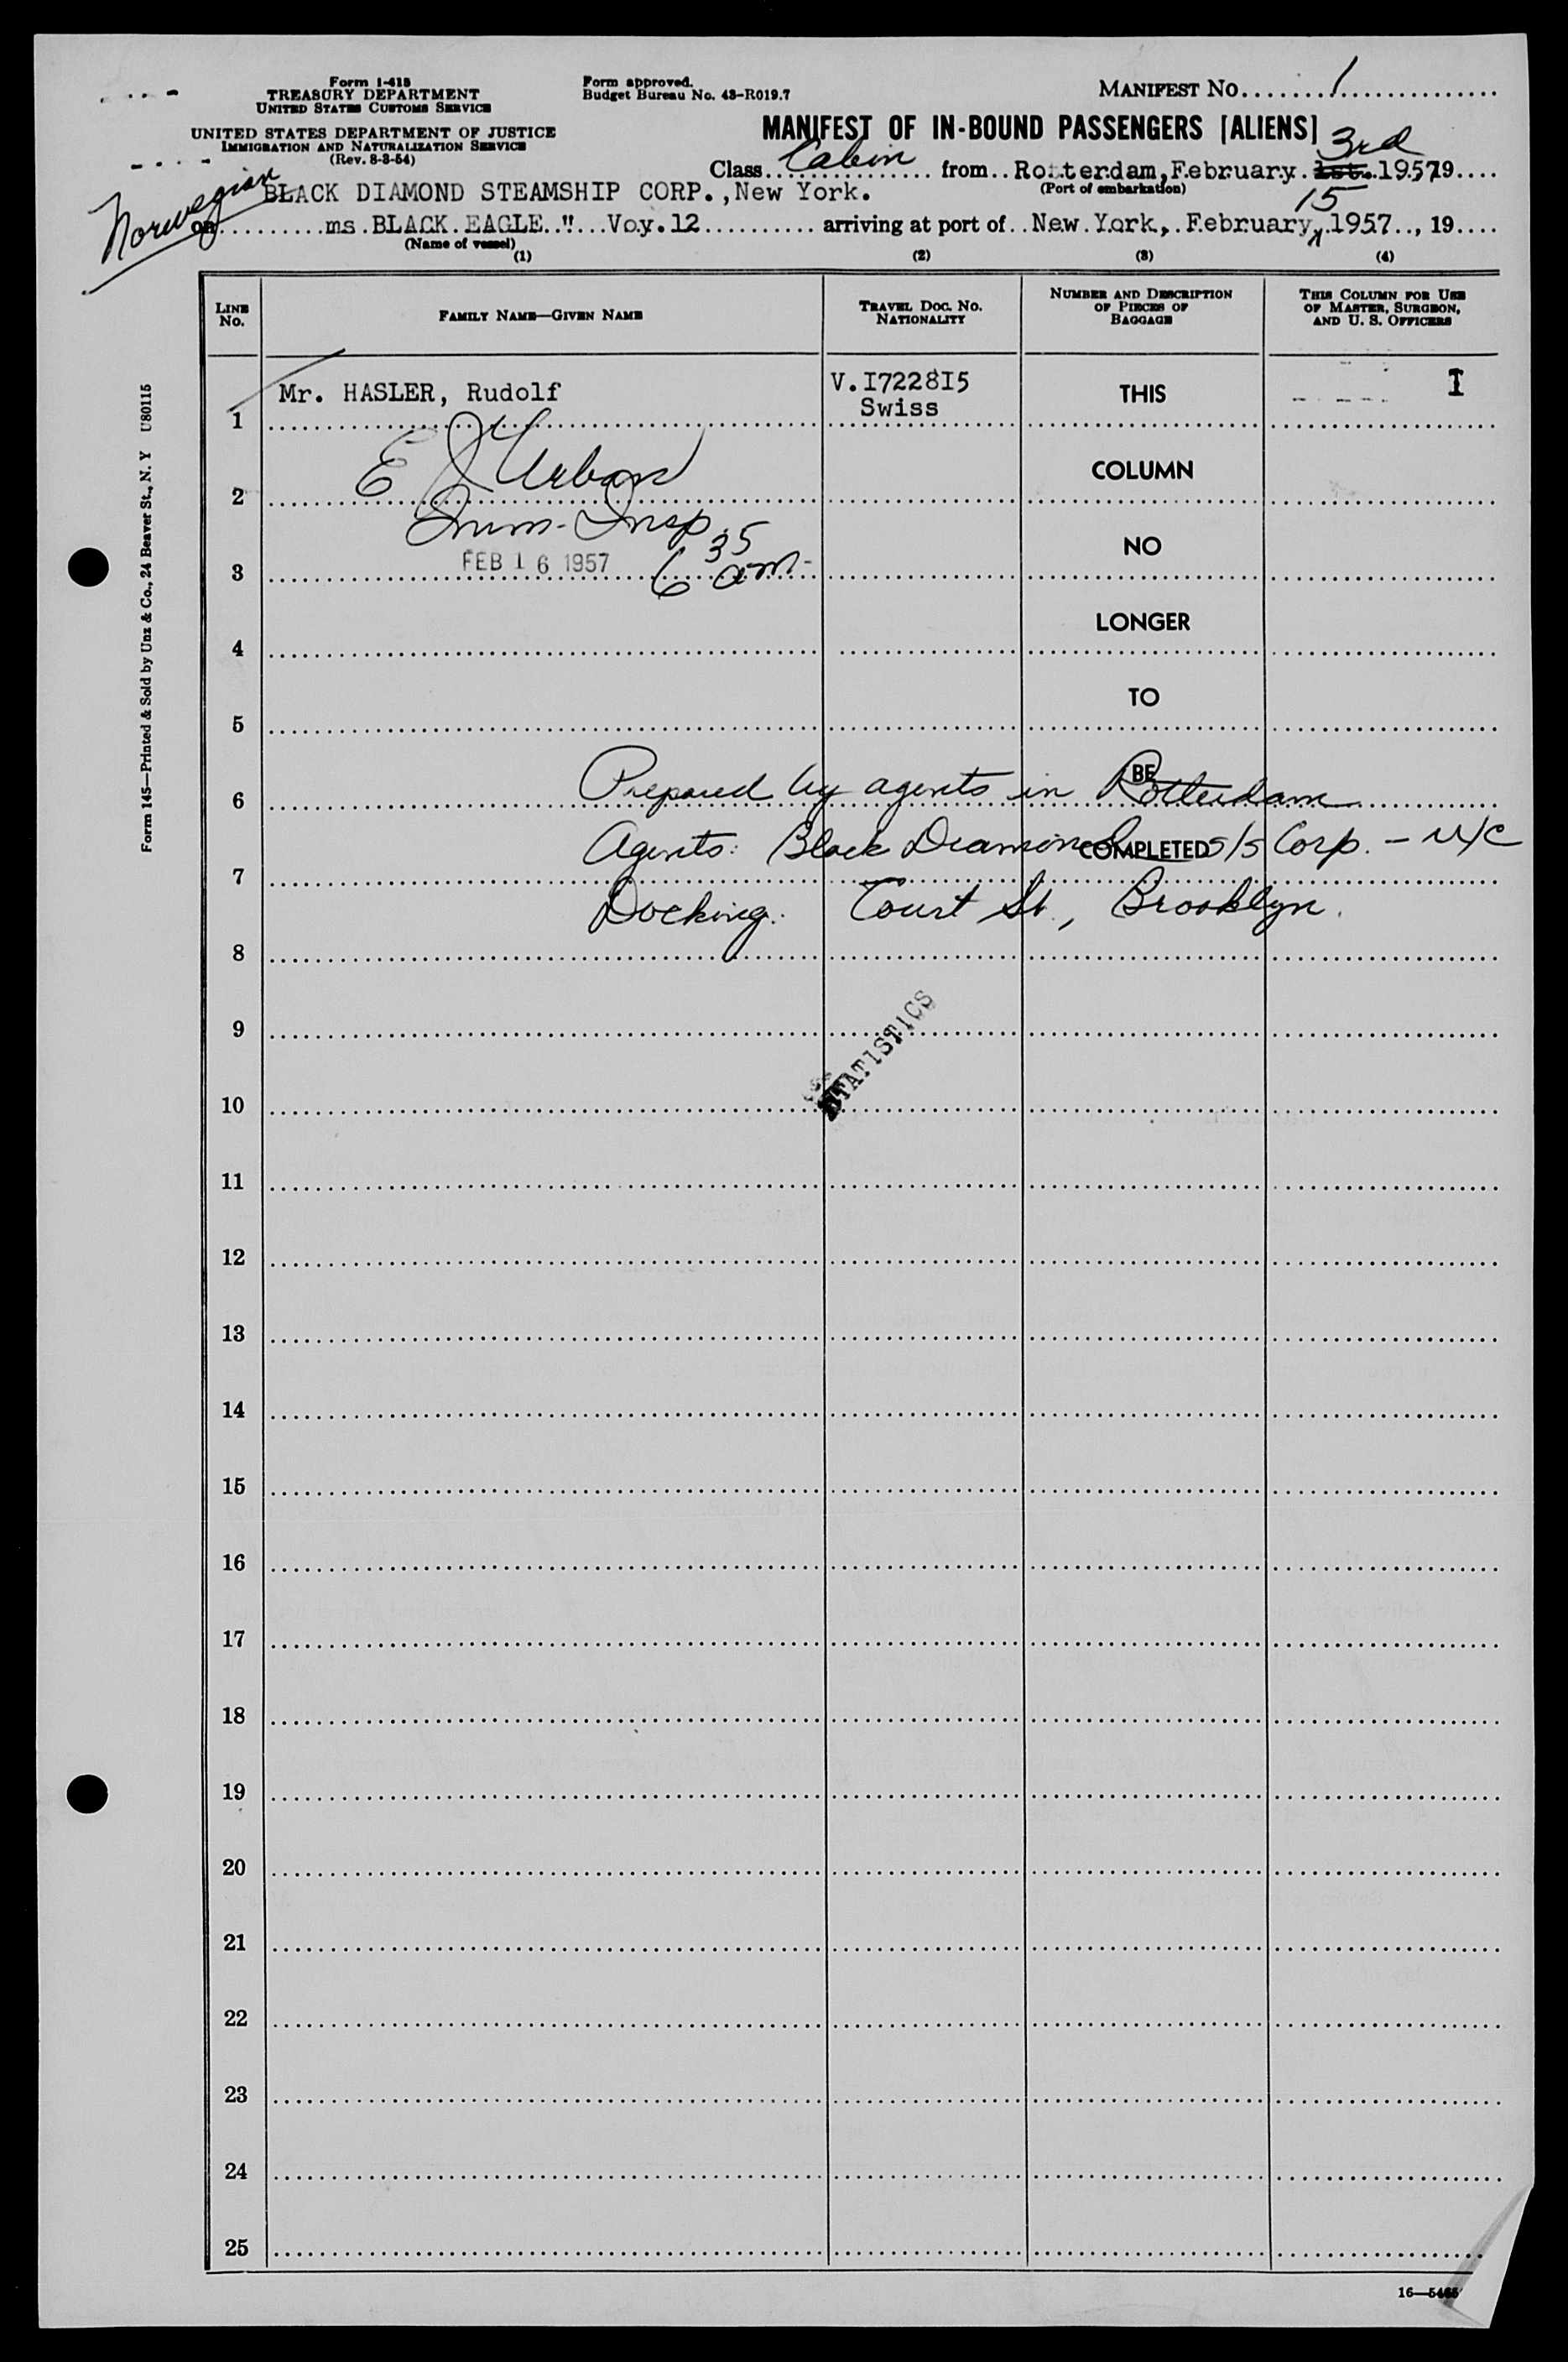 Form I-418
TREASURY DEPARTMENT
UNITED STATES CUSTOMS SERVICE
UNITED STATES DEPARTMENT OF JUSTICE
IMMIGRATION AND NATURALIZATION SERVICE
(Rev. 8-3-54)
Form approved.
Budget Bureau No. 43-R019.7
MANIFEST NO. 1
MANIFEST OF IN-BOUND PASSENGERS [ALIENS]
3rd
Class Cabin from Rotterdam, February 1st. 1957 19
(Port of embarkation)
Norwegian
BLACK DIAMOND STEAMSHIP CORP., New York.
15
on ms. BLACK EAGLE " Voy. 12 arriving at port of New York, February, 1957, 19
(Name of vessel)
(1) (2) (3) (4)
LINE NO.
FAMILY NAME—GIVEN NAME
TRAVEL DOC. NO. NATIONALITY
NUMBER AND DESCRIPTION OF PIECES OF BAGGAGE
THIS COLUMN FOR USE OF MASTER, SURGEON, AND U. S. OFFICERS
1 Mr. HASLER, Rudolf V.I7228I5 THIS I
Swiss
2 E J Urban COLUMN
Imm. Insp.
3 FEB 16 1957 6 35 am- NO
4 LONGER
5 TO
6 Prepared by agents in Rotterdam BE
7 Agents: Black Diamond S/S Corp. - N/C COMPLETED
Docking: Court St., Brooklyn.
8
9
STATISTICS
10
11
12
13
14
15
16
17
18
19
20
21
22
23
24
25
Form 145—Printed & Sold by Unz & Co., 24 Beaver St., N. Y U80115